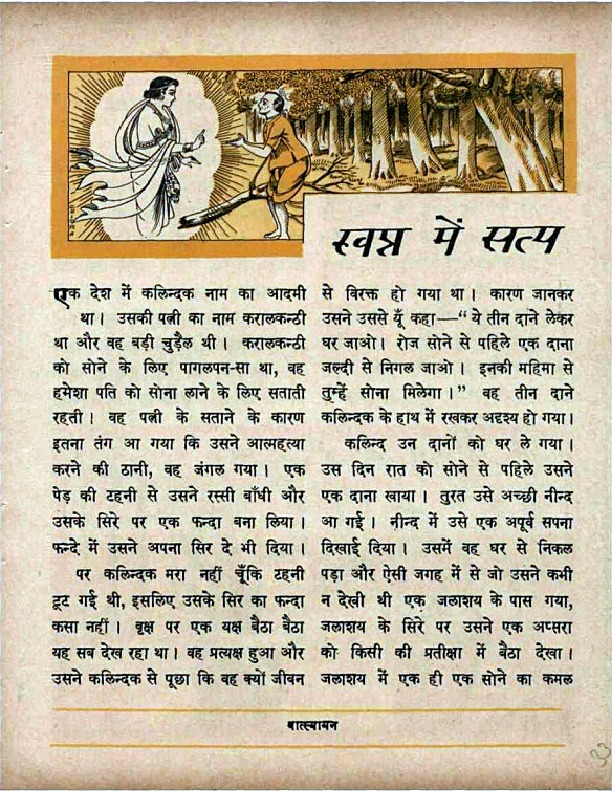 स्वप्न में सत्य
एक देश में कलिन्दक नाम का आदमी
था। उसकी पत्नी का नाम करालकन्ठी
था और वह बड़ी चुड़ैल थी। करालकन्ठी
को सोने के लिए पागलपन-सा था, वह
हमेशा पति को सोना लाने के लिए सताती
रहती। वह पत्नी के सताने के कारण
इतना तंग आ गया कि उसने आत्महत्या
करने की ठानी, वह जंगल गया। एक
पेड़ की टहनी से उसने रस्सी बाँधी और
उसके सिरे पर एक फन्दा बना लिया।
फन्दे में उसने अपना सिर दे भी दिया।
पर कलिन्दक मरा नहीं चूँकि टहनी
टूट गई थी, इसलिए उसके सिर का फन्दा
कसा नहीं। वृक्ष पर एक यक्ष बैठा बैठा
यह सब देख रहा था। वह प्रत्यक्ष हुआ और
उसने कलिन्दक से पूछा कि वह क्यों जीवन
से विरक्त हो गया था। कारण जानकर
उसने उससे यूँ कहा—“ये तीन दाने लेकर
घर जाओ। रोज सोने से पहिले एक दाना
जल्दी से निगल जाओ। इनकी महिमा से
तुम्हें सोना मिलेगा।” वह तीन दाने
कलिन्दक के हाथ में रखकर अदृश्य हो गया।
कलिन्द उन दानों को घर ले गया।
उस दिन रात को सोने से पहिले उसने
एक दाना खाया। तुरत उसे अच्छी नीन्द
आ गई। नीन्द में उसे एक अपूर्व सपना
दिखाई दिया। उसमें वह घर से निकल
पड़ा और ऐसी जगह में से जो उसने कभी
न देखी थी एक जलाशय के पास गया,
जलाशय के सिरे पर उसने एक अप्सरा
को किसी की प्रतीक्षा में बैठा देखा।
जलाशय में एक ही एक सोने का कमल
वात्स्यायन